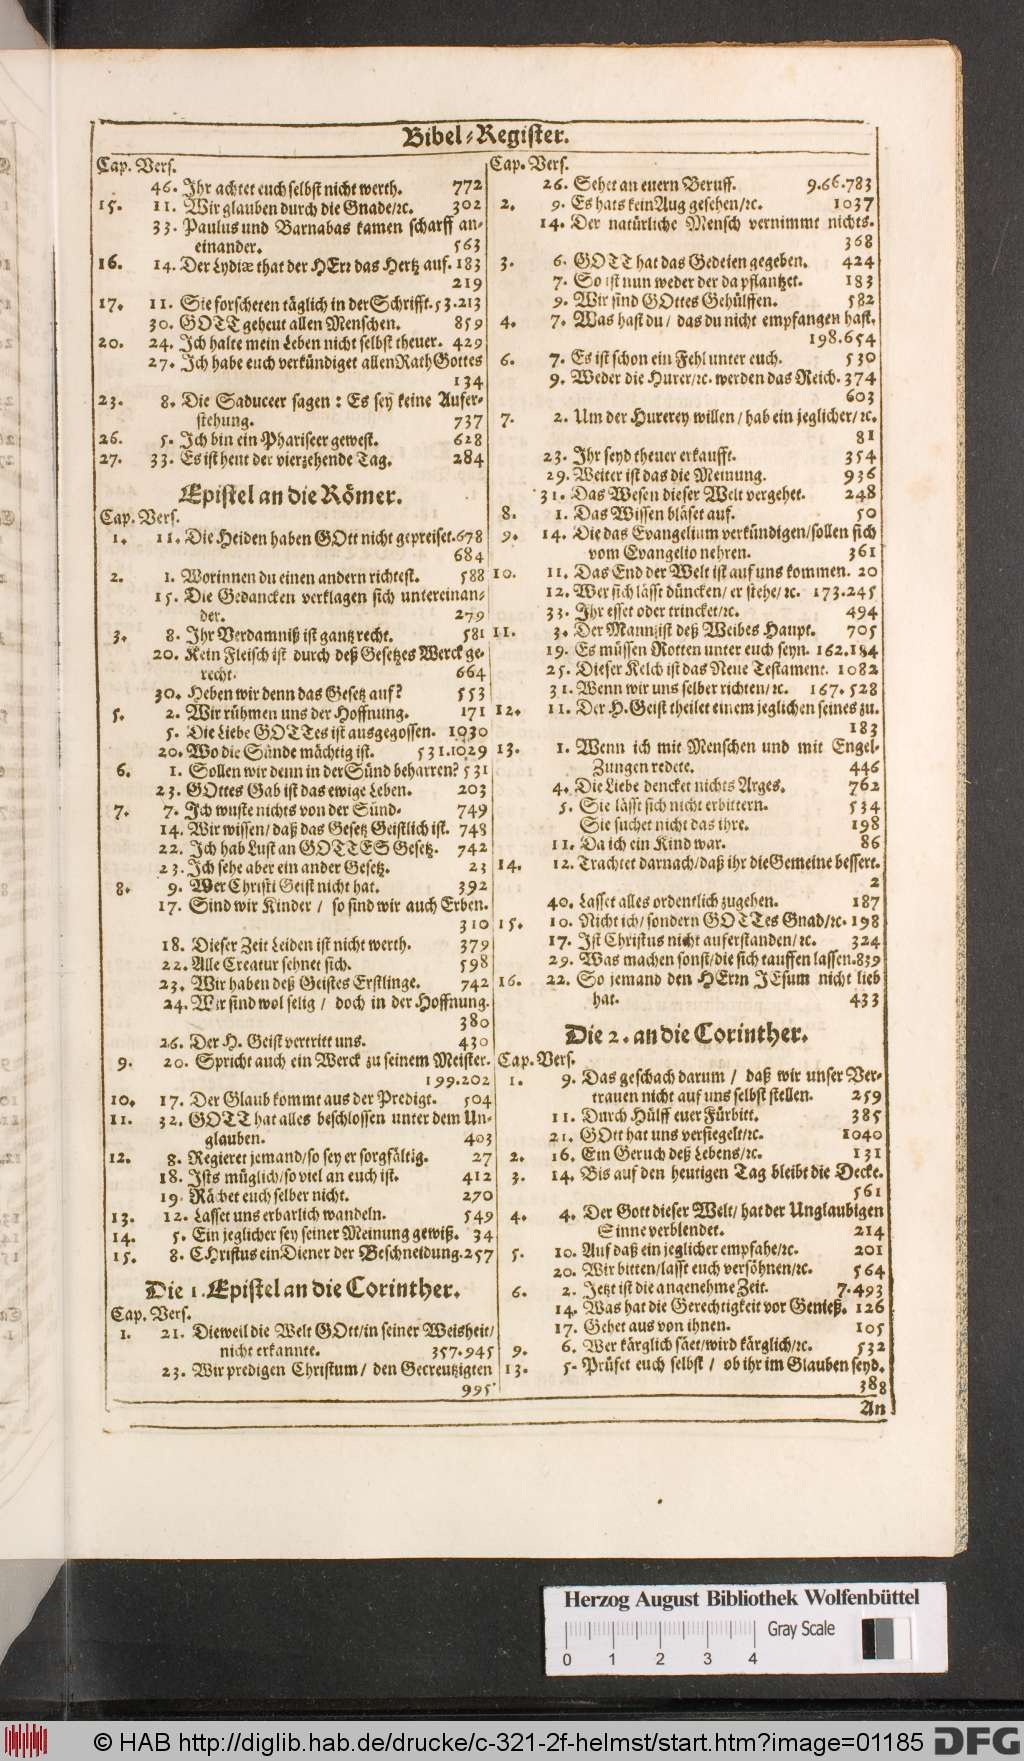 Bibel-Register.
Cap. Vers.
46. Ihr achtet euch selbst nicht werth. 772
15. 11. Wir glauben durch die Gnade/ꝛc. 302
33. Paulus und Barnabas kamen scharff an-
einander. 563
16. 14. Der Lydiæ that der HErꝛ das Hertz auf. 183
219
17. 11. Sie forscheten täglich in der Schrifft. 53.213
30. GOTT gebeut allen Menschen. 859
20. 24. Ich halte mein Leben nicht selbst theuer. 429
27. Ich habe euch verkündiget allen Rath Gottes
134
23. 8. Die Saduceer sagen: Es sey keine Aufer-
stehung. 737
26. 5. Ich bin ein Phariseer gewest. 628
27. 33. Es ist heut der vierzehende Tag. 284
Epistel an die Römer.
Cap. Vers.
1. 11. Die Heiden haben GOtt nicht gepreiset. 678
684
2. 1. Worinnen du einen andern richtest. 588
15. Die Gedancken verklagen sich untereinan-
der. 279
3. 8. Ihr Verdamniß ist gantz recht. 581
20. Kein Fleisch ist durch deß Gesetzes Werck ge-
recht. 664
30. Heben wir denn das Gesetz auf? 553
5. 2. Wir rühmen uns der Hoffnung. 171
5. Die Liebe GOTTes ist ausgegossen. 1030
20. Wo die Sünde mächtig ist. 531.1029
6. 1. Sollen wir denn in der Sünd beharren? 531
23. GOttes Gab ist das ewige Leben. 203
7. 7. Ich wuste nichts von der Sünd. 749
14. Wir wissen/ daß das Gesetz Geistlich ist. 748
22. Ich hab Lust an GOTTES Gesetz. 742
23. Ich sehe aber ein ander Gesetz. 23
8. 9. Wer Christi Geist nicht hat. 392
17. Sind wir Kinder / so sind wir auch Erben.
310
18. Dieser Zeit Leiden ist nicht werth. 379
22. Alle Creatur sehnet sich. 598
23. Wir haben deß Geistes Erstlinge. 742
24. Wir sind wol selig / doch in der Hoffnung.
380
26. Der H. Geist vertritt uns. 430
9. 20. Spricht auch ein Werck zu seinem Meister.
199.202
10. 17. Der Glaub kommt aus der Predigt. 504
11. 32. GOTT hat alles beschlossen unter dem Un-
glauben. 403
12. 8. Regieret jemand/ so sey er sorgfältig. 27
18. Ists müglich/ so viel an euch ist. 412
19. Rächet euch selber nicht. 270
13. 12. Lasset uns erbarlich wandeln. 549
14. 5. Ein jeglicher sey seiner Meinung gewiß. 34
15. 8. CHristus ein Diener der Beschneidung. 257
Die 1. Epistel an die Corinther.
Cap. Vers.
1. 21. Dieweil die Welt GOtt/ in seiner Weisheit/
nicht erkannte. 357.945
23. Wir predigen Christum / den Gecreutzigten
995
Cap. Vers.
26. Sehet an euern Beruff. 9.66.783
2. 9. Es hats kein Aug gesehen/ꝛc. 1037
14. Der natürliche Mensch vernimmt nichts.
368
3. 6. GOTT hat das Gedeien gegeben. 424
7. So ist nun weder der da pflantzet. 183
9. Wir sind GOttes Gehülffen. 582
4. 7. Was hast du / das du nicht empfangen hast.
198.654
6. 7. Es ist schon ein Fehl unter euch. 530
9. Weder die Hurer/ꝛc. werden das Reich. 374
603
7. 2. Um der Hurerey willen / hab ein jeglicher/ ꝛc.
81
23. Ihr seyd theuer erkaufft. 354
29. Weiter ist das die Meinung. 936
31. Das Wesen dieser Welt vergehet. 248
8. 1. Das Wissen bläset auf. 50
9. 14. Die das Evangelium verkündigen/ sollen sich
vom Evangelio nehren. 361
10. 11. Das End der Welt ist auf uns kommen. 20
12. Wer sich lässt düncken/ er stehe/ ꝛc. 173.245
33. Ihr esset oder trincket/ꝛc. 494
11. 3. Der Mann ist deß Weibes Haupt. 705
19. Es müssen Rotten unter euch seyn. 162.184
25. Dieser Kelch ist das Neue Testament. 1082
31. Wenn wir uns selber richten/ ꝛc. 167.528
12. 11. Der H. Geist theilet einem jeglichen seines zu.
183
13. 1. Wenn ich mit Menschen und mit Engel-
Zungen redete. 446
4. Die Liebe dencket nichts Arges. 762
5. Sie lässt sich nicht erbittern. 534
Sie suchet nicht das ihre. 198
11. Da ich ein Kind war. 86
14. 12. Trachtet darnach/ daß ihr die Gemeine bessert.
2
40. Lasset alles ordentlich zugehen. 187
15. 10. Nicht ich/ sondern GOTTes Gnad/ꝛc. 198
17. Ist Christus nicht auferstanden/ ꝛc. 324
29. Was machen sonst/ die sich tauffen lassen. 839
16. 22. So jemand den HErꝛn JEsum nicht lieb
hat. 433
Die 2. an die Corinther.
Cap. Vers.
1. 9. Das geschach darum / daß wir unser Ver-
trauen nicht auf uns selbst stellen. 259
11. Durch Hülff euer Fürbitt. 385
21. GOtt hat uns versiegelt/ꝛc. 1040
2. 16. Ein Geruch deß Lebens/ꝛc. 131
3. 14. Bis auf den heutigen Tag bleibt die Decke.
561
4. 4. Der Gott dieser Welt/ hat der Unglaubigen
Sinne verblendet. 214
5. 10. Auf daß ein jeglicher empfahe/ꝛc. 201
20. Wir bitten/ lasst euch versöhnen/ꝛc. 564
6. 2. Jetzt ist die angenehme Zeit. 7.493
14. Was hat die Gerechtigkeit vor Genieß. 126
17. Gehet aus von ihnen. 105
9. 6. Wer kärglich säet/ wird kärglich/ꝛc. 532
13. 5. Prüfet euch selbst / ob ihr im Glauben seyd.
388
An
Herzog August Bibliothek Wolfenbüttel
Gray Scale
0 1 2 3 4
© HAB http://diglib.hab.de/drucke/c-321-2f-helmst/start.htm?image=01185
DFG